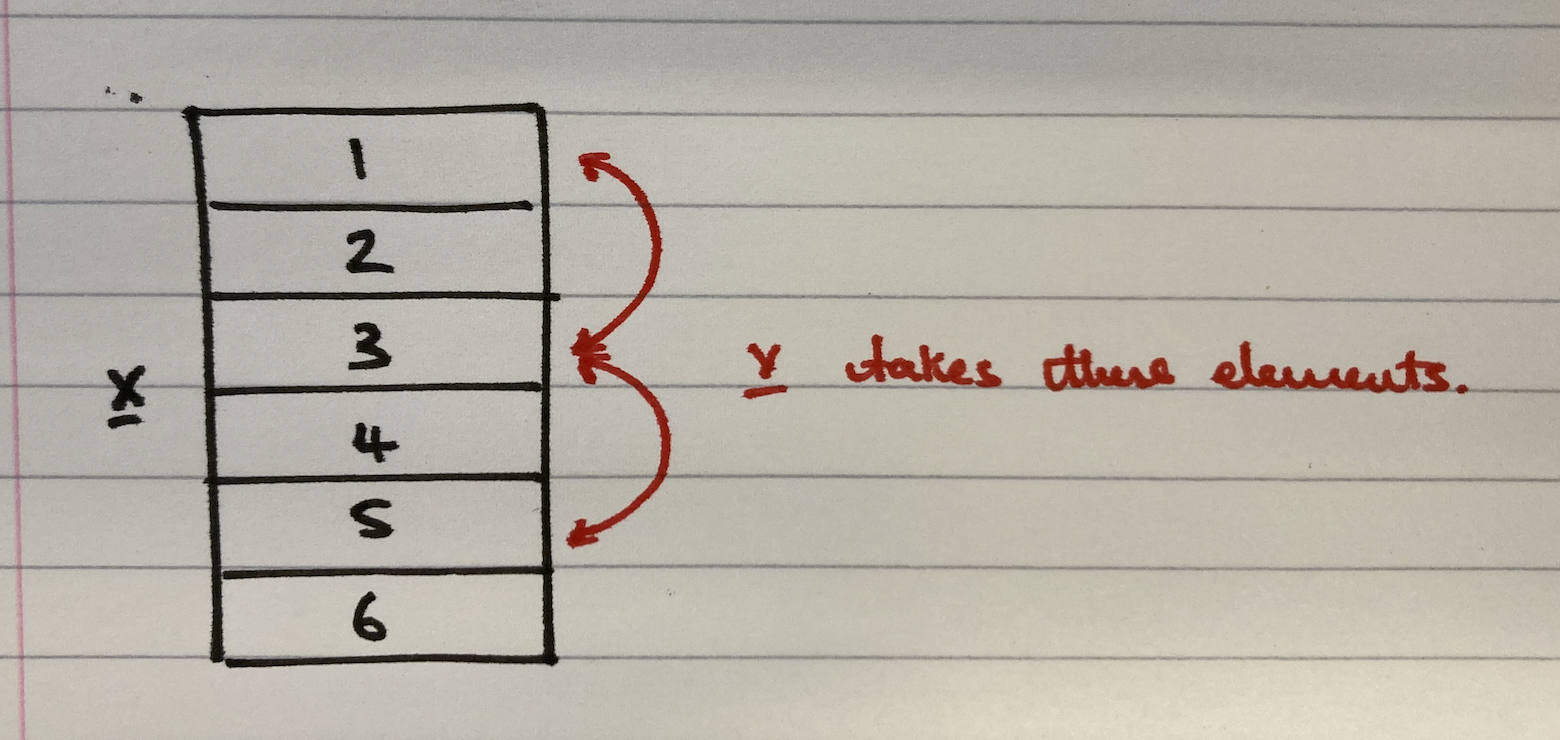 1
2
3
x
4
5
6
y takes these elements.